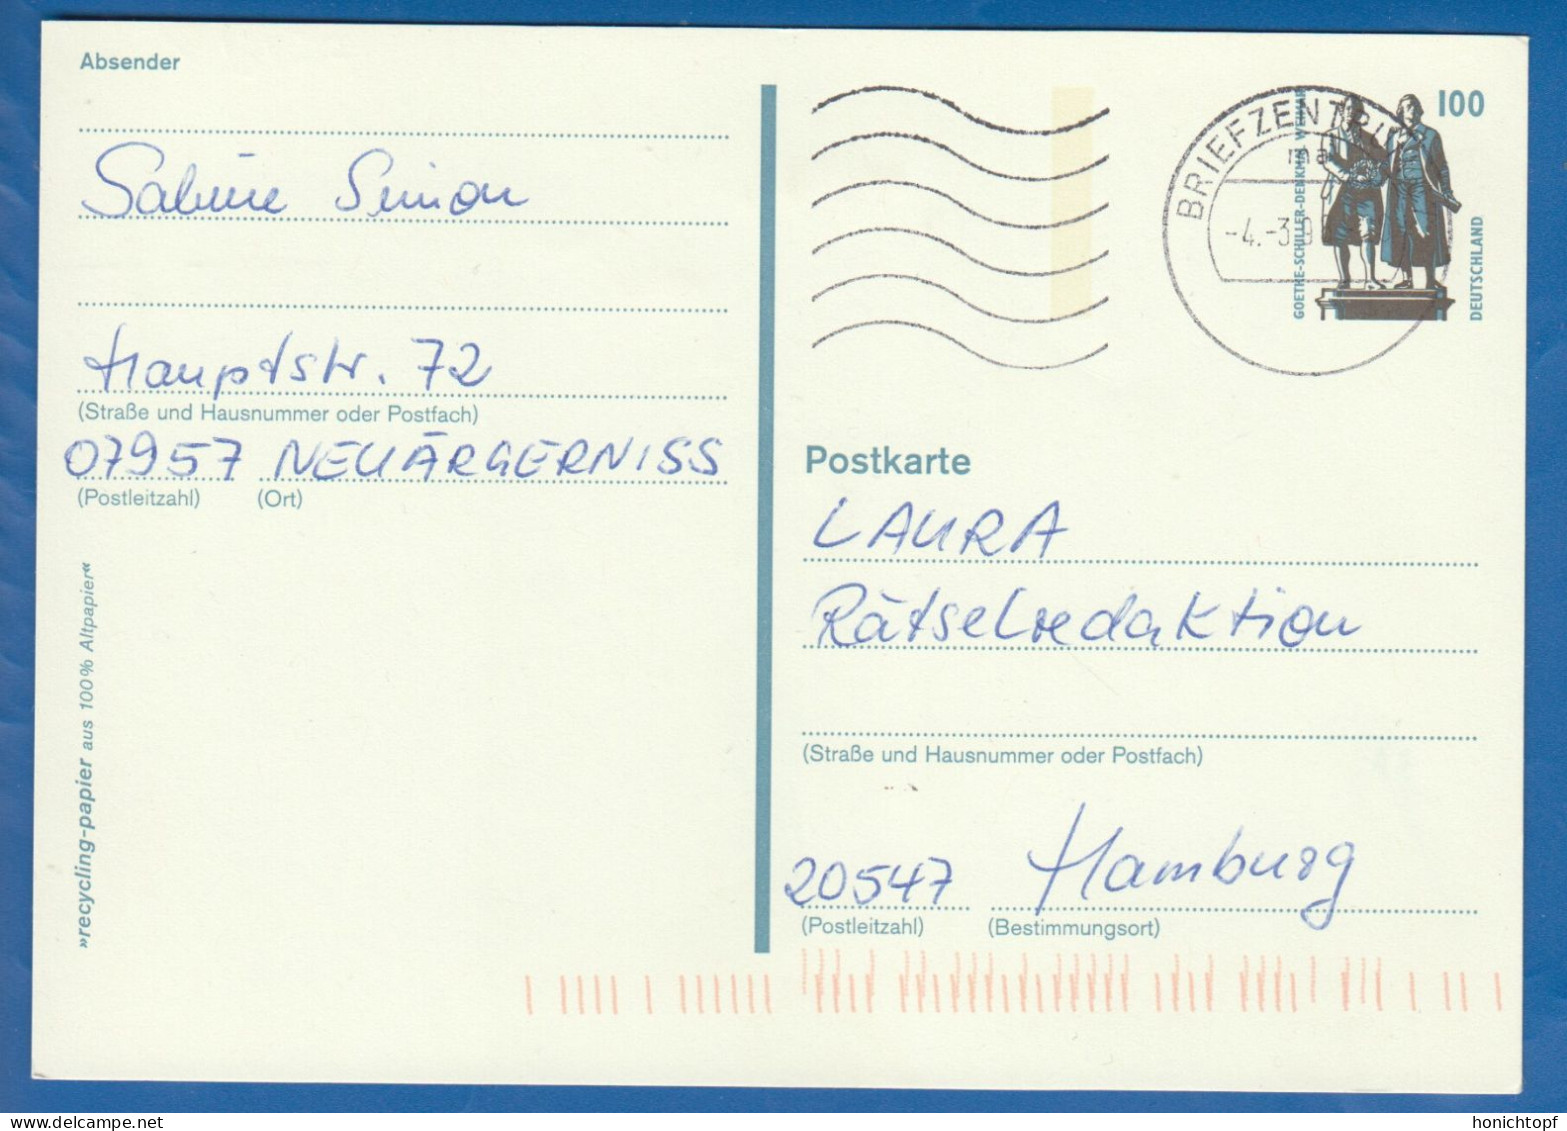 Absender
Sabine Simon
Hauptstr. 72
(Straße und Hausnummer oder Postfach)
07957 NEUÄRGERNISS
(Postleitzahl) (Ort)
»recycling-papier aus 100% Altpapier«
BRIEFZENTRUM
-4.-3.9
100
GOETHE-SCHILLER-DENKMAL WEIMAR
DEUTSCHLAND
Postkarte
LAURA
Rätselredaktion
(Straße und Hausnummer oder Postfach)
20547 Hamburg
(Postleitzahl) (Bestimmungsort)
honichtopf